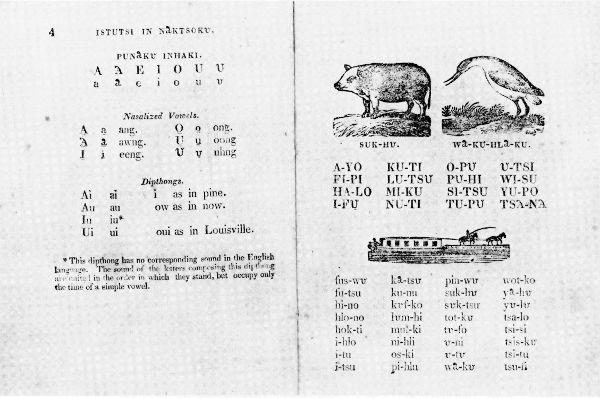 4 ISTUTSI IN NȺKTSOKU.
PUNȺKU INHAKI.
A Ⱥ E I O U Ʋ
a ⱥ e i o u ʋ
Nasalized Vowels.
A̱ a̱ ang. O̱ o̱ ong.
Ⱥ̱ ⱥ̱ awng. U̱ u̱ oong
I̱ i̱ eeng. Ʋ̱ ʋ̱ uhng
Dipthongs.
Ai ai i as in pine.
Au au ow as in now.
Iu iu*
Ui ui oui as in Louisville.
* This dipthong has no corresponding sound in the English
language. The sound of the letters composing this dipthong
are united in the order in which they stand, but occupy only
the time of a simple vowel.
SUK-HƲ. WȺ-KU-HLȺ-KU.
A-YO KU-TI O-PU Ʋ-TSI
FI-PI LU-TSU PU-HI WI-SU
HA-LO MI-KU SI-TSU YU-PO
I-FU NU-TI TU-PU TSȺ-NȺ
fus-wʋ kⱥ-tsʋ pin-wʋ wot-ko
fu-tsu ku-nu suk-hʋ yⱥ-hʋ
hi-no kʋf-ko sʋk-tsʋ yu-lʋ
hlo-no lʋm-hi tot-kʋ tsa-lo
hok-ti mʋl-ki tʋ-fo tsi-si
i-hlo ni-hli ʋ-ni tsis-kʋ
i-tu os-ki ʋ-tʋ tsi-tu
i-tsu pi-hin wⱥ-kʋ tsu-fi